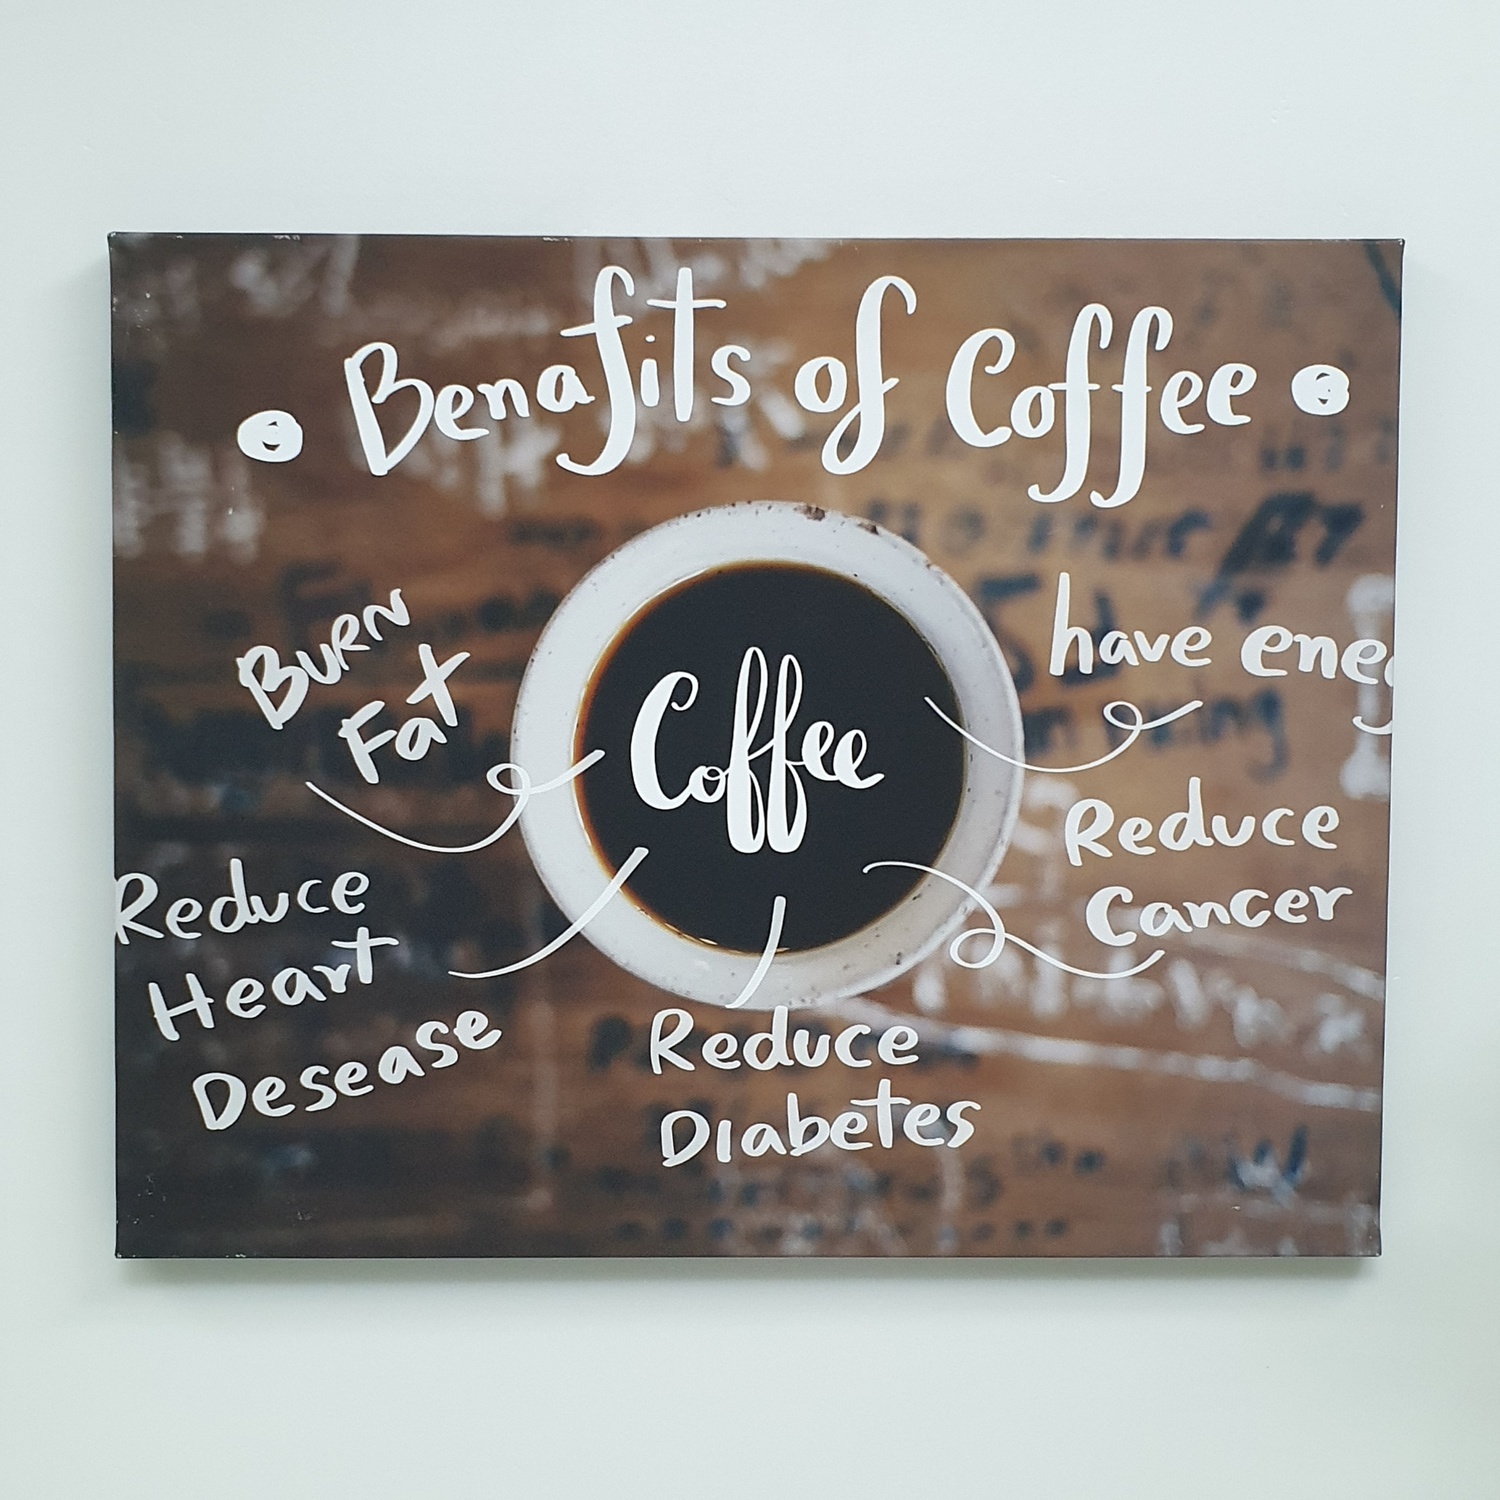 Benafits of Coffee
Burn
Fat
have eneg
Coffee
Reduce
Cancer
Reduce
Heart
Desease
Reduce
Diabetes